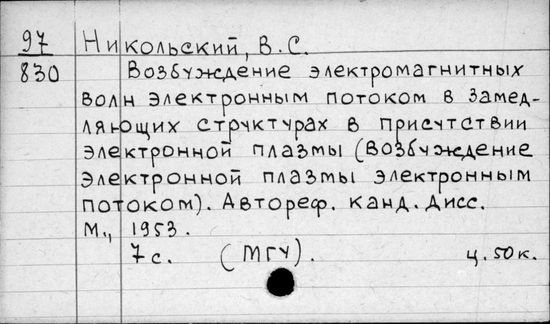 97 Никольский, В.С.
830 Возбуждение электромагнитных
волн электронным потоком в замед-
ляющих структурах в присутствии
электронной плазмы (Возбуждение
электронной плазмы электронным
потоком). Автореф. канд. дисс.
М., 1953.
7 с. (МГУ). ц. 50 к.